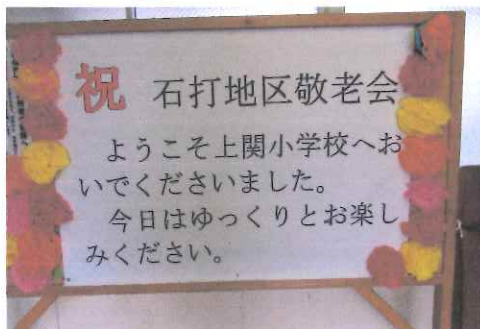 祝 石打地区敬老会
ようこそ上関小学校へお
いでくださいました。
今日はゆっくりとお楽し
みください。